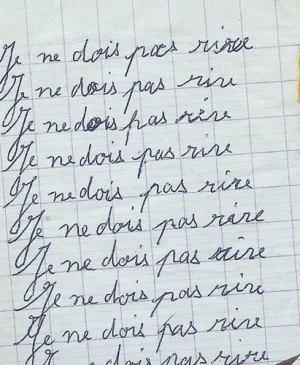 Je ne dois pas rire
Je ne dois pas rire
Je ne dois pas rire
Je ne dois pas rire
Je ne dois pas rire
Je ne dois pas rire
Je ne dois pas rire
Je ne dois pas rire
Je ne dois pas rire
Je ne dois pas rire